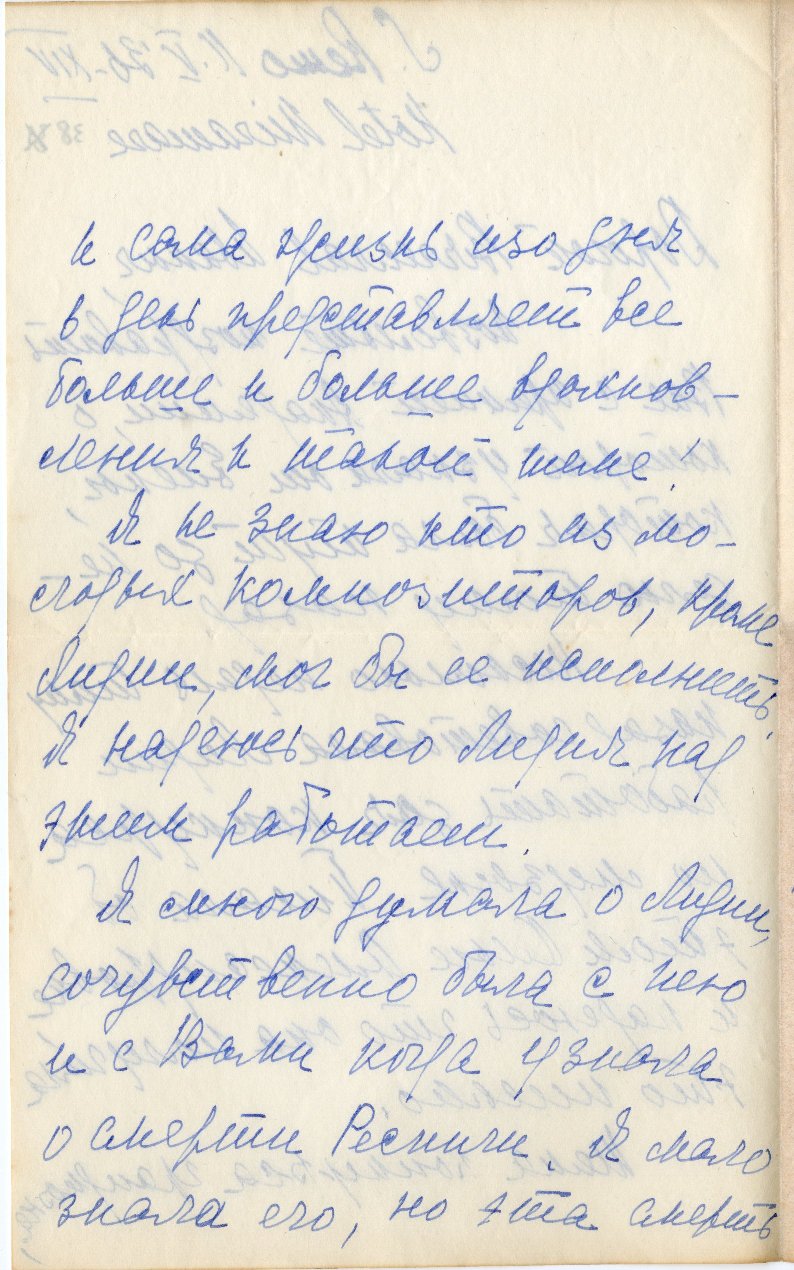 и сама жизнь изо дня
в день представляет все
больше и больше вдохнов-
ления к такой теме!
Я не знаю кто из мо-
лодых композиторов, кроме
Лидии, мог бы ее исполнить.
Я надеюсь что Лидия над
этим работает.
Я много думала о Лидии,
сочувственно была с нею
и с Вами когда узнала
о смерти Респиги. Я мало
знала его, но эта смерть